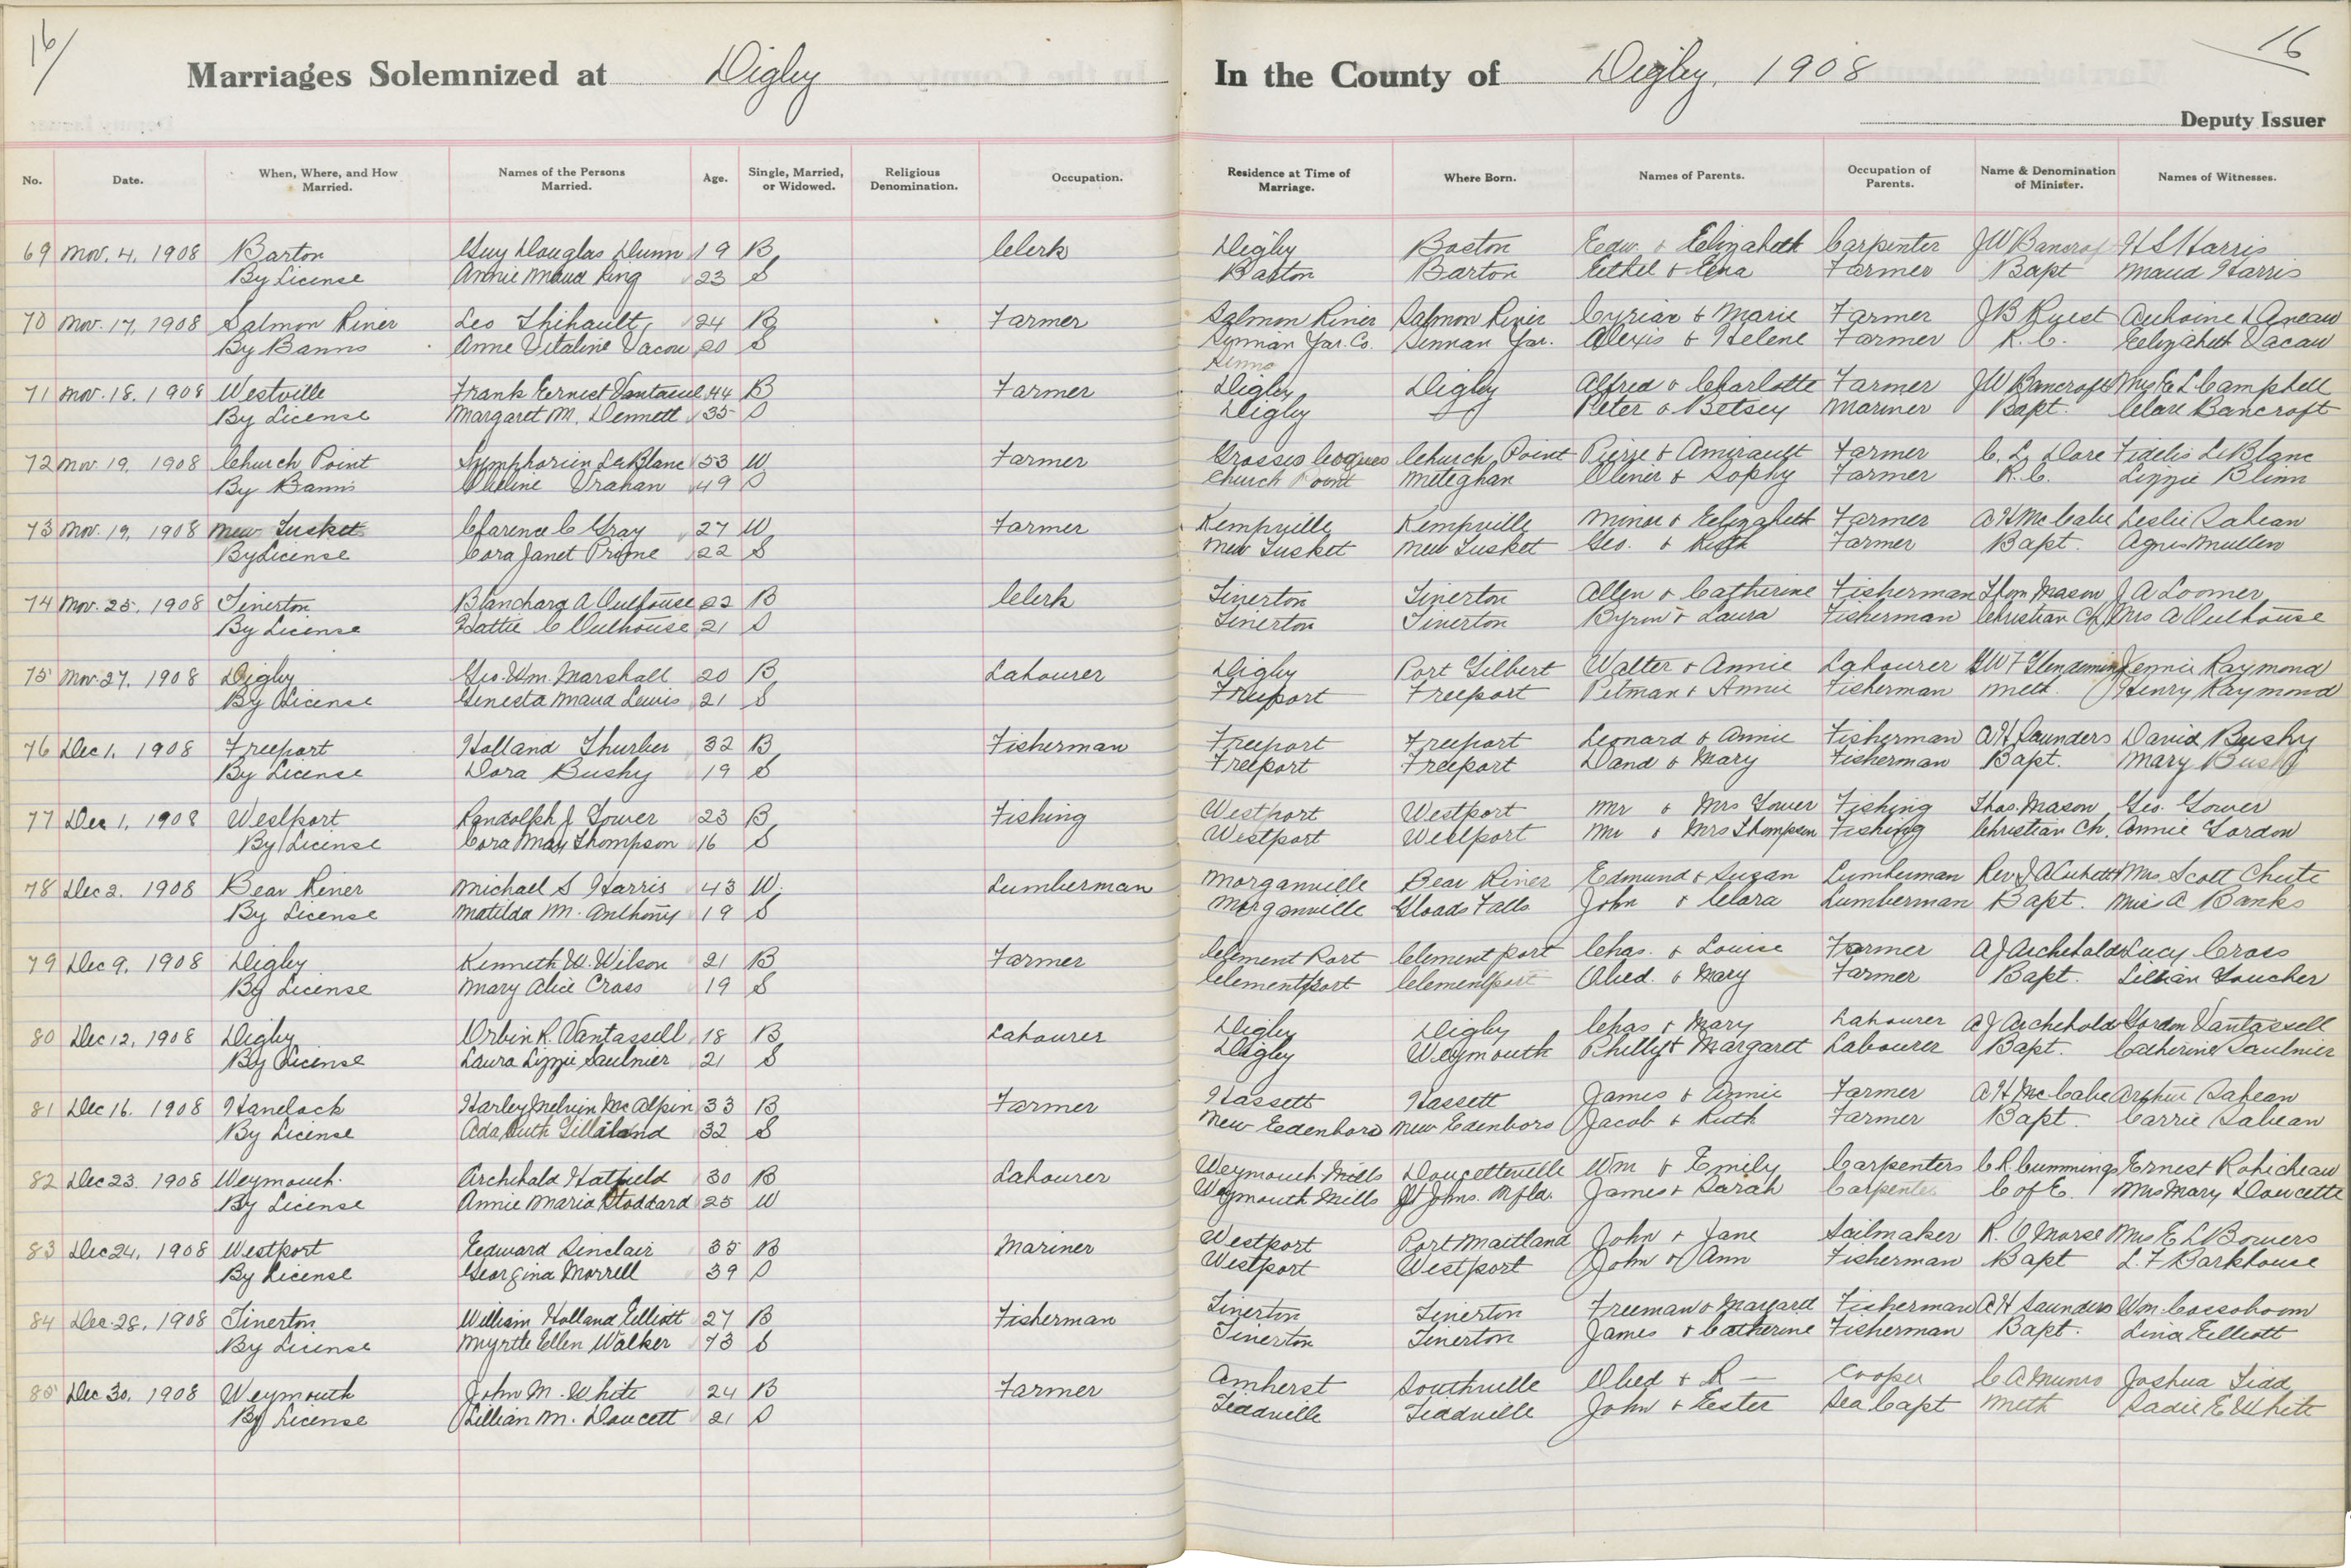 16/
16
Marriages Solemnized at Digby In the County of Digby, 1908
Deputy Issuer
No. Date. When, Where, and How Married. Names of the Persons Married. Age. Single, Married, or Widowed. Religious Denomination. Occupation. Residence at Time of Marriage. Where Born. Names of Parents. Occupation of Parents. Name & Denomination of Minister. Names of Witnesses.
69 Nov. 4, 1908 Barton Guy Douglas Dunn 19 B Clerk Digby Boston Edw. & Elizabeth Carpenter JW Bancrof H S Harris
By License Annie Maud King 23 S Barton Barton Ethel & Ena Farmer Bapt Maud Harris
70 Nov. 17, 1908 Salmon River Leo Thibault 24 B Farmer Salmon River Salmon River Cyriar & Marie Farmer J B Ruest
By Banns Anne Vitaline Vacou 20 S Yar. Co. Yar. Alexis & Helene Farmer R. C. Elizabeth Vacau
71 Nov. 18, 1908 Westville Frank Ernest Vantassel 44 B Farmer Digby Digby Alfred & Charlotte Farmer JW Bancroft Mrs E L Campbell
By License Margaret M. Dennett 35 S Digby " Peter & Betsey Mariner Bapt. Clare Bancroft
72 Nov. 19, 1908 Church Point Symphorien LeBlanc 53 W Farmer Grosses Coques Church Point Pierre & Amirault Farmer C. L. Dore Fidelis LeBlanc
By Banns Vrahan 49 S Church Point Meteghan Olivier & Sophy Farmer R. C. Lizzie Blinn
73 Nov. 19, 1908 New Tusket Clarence C Gray 27 W Farmer Kempville Kempville Minor & Elizabeth Farmer A H McCabe Leslie Sabean
By License Cora Janet Prime 22 S New Tusket New Tusket Geo. & Ruth Farmer Bapt. Agnes Mullen
74 Nov. 25, 1908 Tiverton Blanchard A Outhouse 22 B Clerk Tiverton Tiverton Allen & Catherine Fisherman Thom Mason J A Loomer
By License Hattie C Outhouse 21 S Tiverton Tiverton Byron & Laura Fisherman Christian Ch Mrs A Outhouse
75 Nov. 27, 1908 Digby Geo. Wm. Marshall 20 B Labourer Digby Port Gilbert Walter & Annie Labourer G W F Glendenning Jennie Raymond
By License Genesta Maud Lewis 21 S Freeport Freeport Pitman & Annie Fisherman Meth. Henry Raymond
76 Dec 1, 1908 Freeport Holland Thurber 32 B Fisherman Freeport Freeport Leonard & Annie Fisherman A H Saunders David Bushy
By License Dora Bushy 19 S Freeport Freeport David & Mary Fisherman Bapt. Mary Bushy
77 Dec 1, 1908 Westport Randolph J Gower 23 B Fishing Westport Westport Mr & Mrs Gower Fishing Thos. Mason Geo. Gower
By License Cora May Thompson 16 S Westport Westport Mr & Mrs Thompson Fishing Christian Ch. Annie Gordon
78 Dec 2, 1908 Bear River Michael S Harris 43 W. Lumberman Morganville Bear River Edmund & Suzan Lumberman Mrs Scott Chute
By License Matilda M. Anthony 19 S Morganville Gloads Falls John & Clara Lumberman Bapt. Miss A Banks
79 Dec 9, 1908 Digby Kenneth W. Wilson 21 B Farmer Clement Port Clement port Chas. & Louise Farmer A J Archibald Lucy Cross
By License Mary Alice Cross 19 S Clementsport Clementsport Obed. & Mary Farmer Bapt. Lillian Goucher
80 Dec 12, 1908 Digby Orbin R. Vantassell 18 B Labourer Digby Digby Chas & Mary Labourer A J Archibald Gordon Vantassell
By License Laura Lizzie Saulnier 21 S Digby Weymouth Philly & Margaret Labourer Bapt. Catherine Saulnier
81 Dec 16, 1908 Havelock Harley Melvin McAlpin 33 B Farmer Hassett Hassett James & Annie Farmer A H McCabe Arthur Sabean
By License Ada Ruth Gilliland 32 S New Edenboro New Edenboro Jacob & Ruth Farmer Bapt. Carrie Sabean
82 Dec 23, 1908 Weymouth. Archibald Hatfield 30 B Labourer Weymouth Mills Doucetteville Wm & Emily Carpenters C R Cummings Ernest Robicheau
By License Annie Maria Stoddard 25 W Weymouth Mills St Johns. Nfld. James & Sarah Carpenter C of E. Mrs Mary Doucette
83 Dec 24, 1908 Westport Edward Sinclair 35 B Mariner Westport Port Maitland John & Jane Sailmaker R. O Morse Mrs E L Bowers
By License Georgina Morrell 39 S Westport Westport John & Ann Fisherman Bapt L. F Barkhouse
84 Dec. 28, 1908 Tiverton William Holland Elliott 27 B Fisherman Tiverton Tiverton Freeman & Margaret Fisherman A H Saunders Wm. Cossoboom
By License Myrtle Ellen Walker 73 S Tiverton Tiverton James & Catherine Fisherman Bapt. Lina Elliott
85 Dec 30, 1908 Weymouth John M. White 24 B Farmer Amherst Southville Obed & R — Cooper C A Munro Joshua Tidd
By License Lillian M. Doucett 21 S Tiddville Tiddville John & Ester Sea Capt Meth Sadie E White